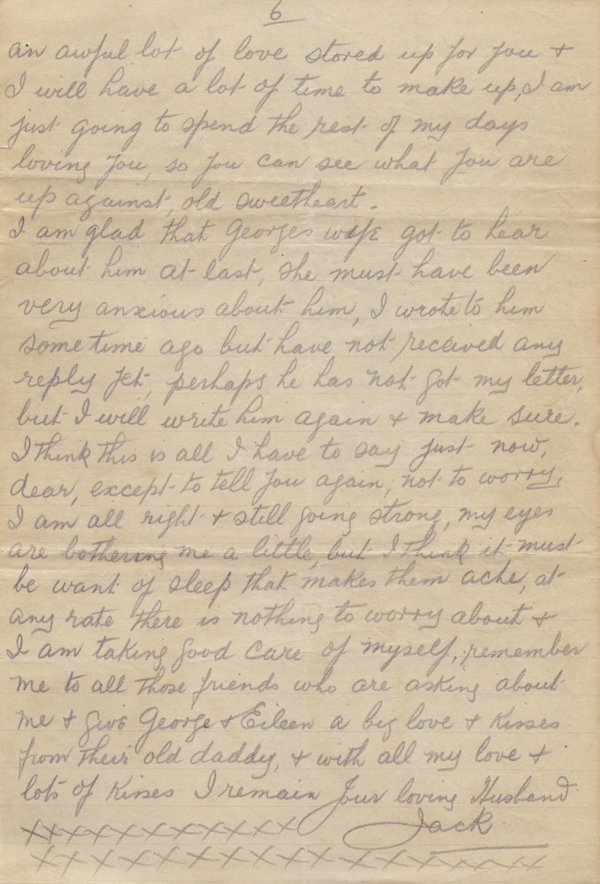 6
an awful lot of love stored up for you +
I will have a lot of time to make up, I am
just going to spend the rest of my days
loving you, so you can see what you are
up against, old sweetheart.
I am glad that Georges wife got to hear
about him at last, she must have been
very anxious about him, I wrote to him
some time ago but have not received any
reply yet, perhaps he has not got my letter,
but I will write him again + make sure.
I think this is all I have to say just now,
dear, except to tell you again, not to worry,
I am all right + still going strong, my eyes
are bothering me a little, but I think it must
be want of sleep that makes them ache, at
any rate there is nothing to worry about +
I am taking good care of myself, remember
me to all those friends who are asking about
me + give George + Eileen a big love + kisses
from their old daddy, + with all my love +
lots of kisses I remain your loving Husband
Jack
xxxxxxxxxxxxx
xxxxxxxxxxxxxxxxxxxx